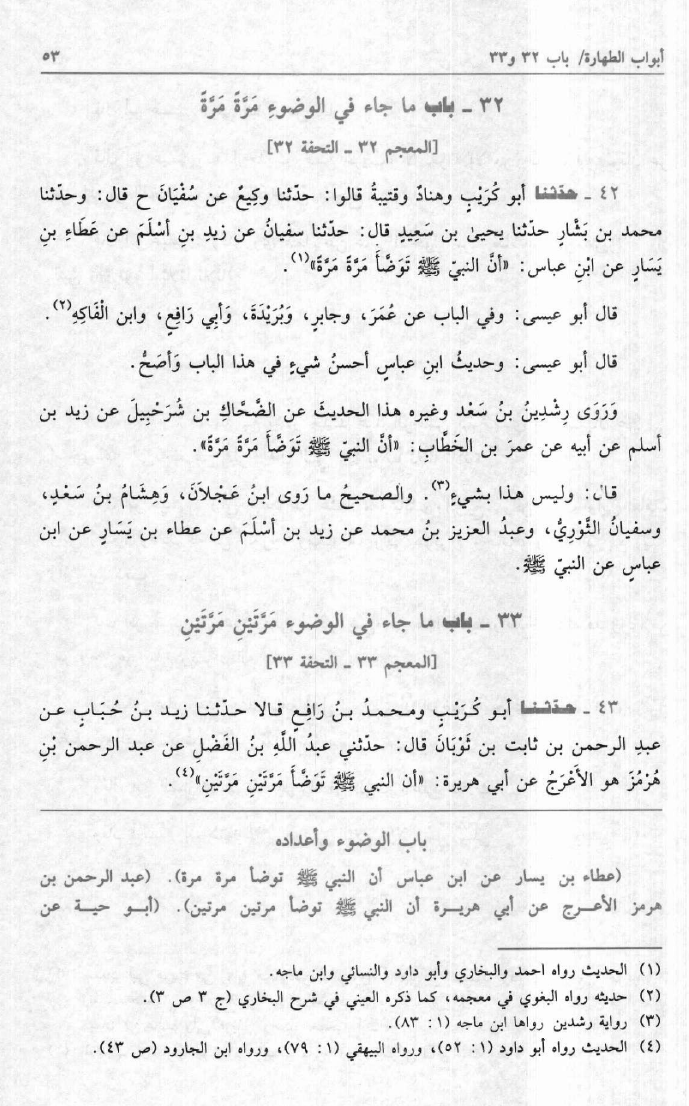 أبواب الطهارة/ باب ٣٢ و٣٣ ٥٣
٣٢ ـ باب ما جاء في الوضوءِ مَرَّةً مَرَّةً
[المعجم ٣٢ ـ التحفة ٣٢]
٤٢ ـ حدّثنا أبو كُرَيْبٍ وهنادٌ وقتيبةُ قالوا: حدّثنا وكِيعٌ عن سُفْيَانَ ح قال: وحدّثنا
محمد بن بَشَّارٍ حدّثنا يحيىٰ بن سَعِيدٍ قال: حدّثنا سفيانُ عن زيدِ بنِ أسْلَمَ عن عَطَاءِ بنِ
يَسَارٍ عن ابْنِ عباس: «أنَّ النبيّ ﷺ تَوَضَّأَ مَرَّةً مَرَّةً»(١).
قال أبو عيسى: وفي الباب عن عُمَرَ، وجابرٍ، وَبُرَيْدَةَ، وَأبي رَافِعٍ، وابن الْفَاكِهِ(٢).
قال أبو عيسى: وحديثُ ابنِ عباسٍ أحسنُ شيءٍ في هذا الباب وَأصَحُّ.
وَرَوَى رِشْدِينُ بنُ سَعْد وغيره هذا الحديثَ عن الضَّحَّاكِ بن شُرَحْبِيلَ عن زيد بن
أسلم عن أبيه عن عمرَ بن الخَطَّابِ: «أنَّ النبيّ ﷺ تَوَضَّأَ مَرَّةً مَرَّةً».
قال: وليس هذا بشيءٍ(٣). والصحيحُ ما رَوى ابنُ عَجْلاَنَ، وَهِشَامُ بنُ سَعْدٍ،
وسفيانُ الثَّوْرِيُّ، وعبدُ العزيز بنُ محمد عن زيد بن أسْلَمَ عن عطاء بن يَسَارٍ عن ابن
عباسٍ عن النبيّ ﷺ.
٣٣ ـ باب ما جاء في الوضوء مَرَّتَيْنِ مَرَّتَيْنِ
[المعجم ٣٣ ـ التحفة ٣٣]
٤٣ ـ حدّثنا أبو كُرَيْبٍ ومحمدُ بنُ رَافِعٍ قالا حدّثنا زيد بنُ حُبَابٍ عن
عبدِ الرحمن بن ثابت بن ثَوْبَانَ قال: حدّثني عبدُ اللَّهِ بنُ الفَضْلِ عن عبد الرحمن بْنِ
هُرْمُزَ هو الأَعْرَجُ عن أبي هريرة: «أن النبي ﷺ تَوَضَّأَ مَرَّتَيْنِ مَرَّتَيْنِ»(٤).
باب الوضوء وأعداده
(عطاء بن يسار عن ابن عباس أن النبي ﷺ توضأ مرة مرة). (عبد الرحمن بن
هرمز الأعرج عن أبي هريرة أن النبي ﷺ توضأ مرتين مرتين). (أبو حية عن
(١) الحديث رواه احمد والبخاري وأبو داود والنسائي وابن ماجه.
(٢) حديثه رواه البغوي في معجمه، كما ذكره العيني في شرح البخاري (ج ٣ ص ٣).
(٣) رواية رشدين رواها ابن ماجه (١: ٨٣).
(٤) الحديث رواه أبو داود (١: ٥٢)، ورواه البيهقي (١: ٧٩)، ورواه ابن الجارود (ص ٤٣).